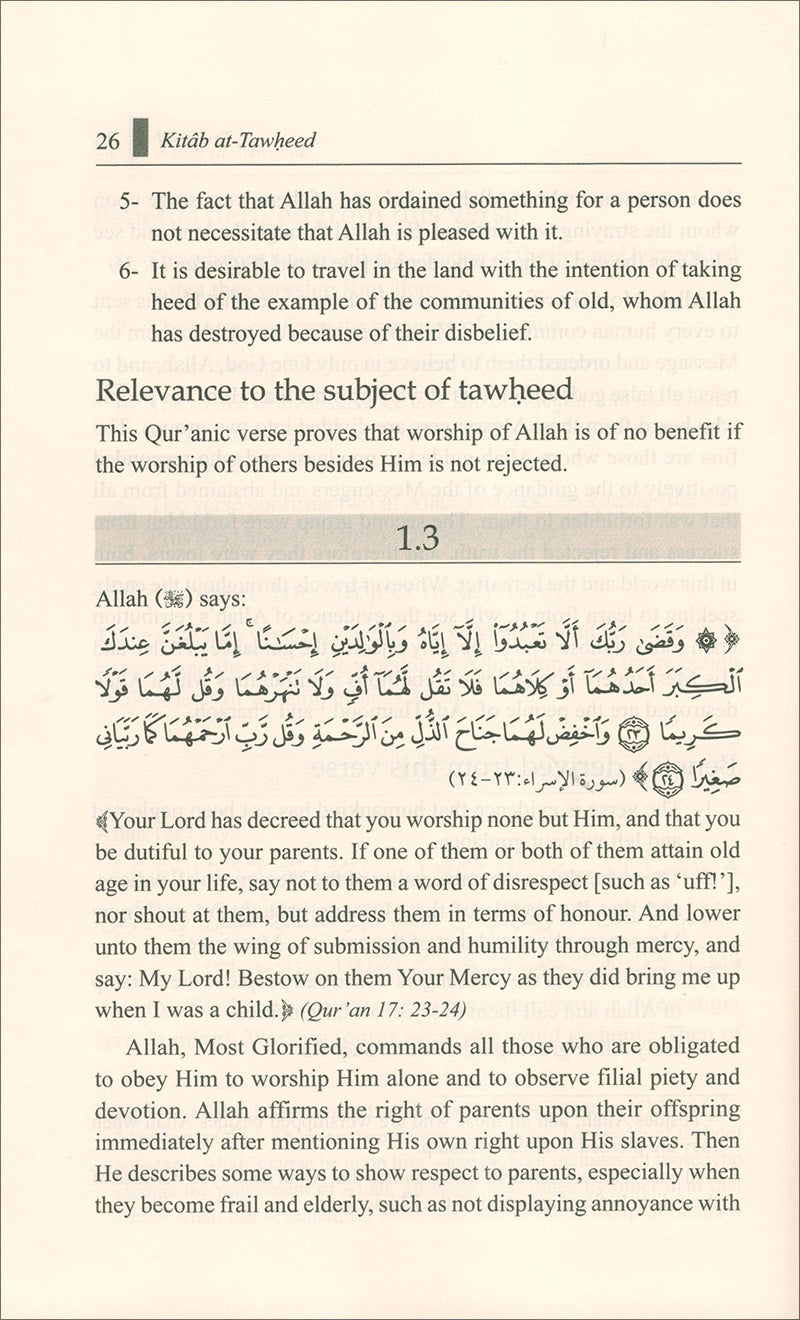 26 Kitâb at-Tawḥeed
5- The fact that Allah has ordained something for a person does
not necessitate that Allah is pleased with it.
6- It is desirable to travel in the land with the intention of taking
heed of the example of the communities of old, whom Allah
has destroyed because of their disbelief.
Relevance to the subject of tawḥeed
This Qur’anic verse proves that worship of Allah is of no benefit if
the worship of others besides Him is not rejected.
1.3
Allah (ﷻ) says:
﴿ ۞ وَقَضَىٰ رَبُّكَ أَلَّا تَعْبُدُوٓا۟ إِلَّآ إِيَّاهُ وَبِٱلْوَٰلِدَيْنِ إِحْسَـٰنًا ۚ إِمَّا يَبْلُغَنَّ عِندَكَ
ٱلْكِبَرَ أَحَدُهُمَآ أَوْ كِلَاهُمَا فَلَا تَقُل لَّهُمَآ أُفٍّ وَلَا تَنْهَرْهُمَا وَقُل لَّهُمَا قَوْلًا
كَرِيمًا ﴿٢٣﴾ وَٱخْفِضْ لَهُمَا جَنَاحَ ٱلذُّلِّ مِنَ ٱلرَّحْمَةِ وَقُل رَّبِّ ٱرْحَمْهُمَا كَمَا رَبَّيَانِى
صَغِيرًا ﴿٢٤﴾ ﴾ (سورة الإسراء: ٢٣-٢٤)
﴾Your Lord has decreed that you worship none but Him, and that you
be dutiful to your parents. If one of them or both of them attain old
age in your life, say not to them a word of disrespect [such as ‘uff!’],
nor shout at them, but address them in terms of honour. And lower
unto them the wing of submission and humility through mercy, and
say: My Lord! Bestow on them Your Mercy as they did bring me up
when I was a child.﴿ (Qur’an 17: 23-24)
Allah, Most Glorified, commands all those who are obligated
to obey Him to worship Him alone and to observe filial piety and
devotion. Allah affirms the right of parents upon their offspring
immediately after mentioning His own right upon His slaves. Then
He describes some ways to show respect to parents, especially when
they become frail and elderly, such as not displaying annoyance with